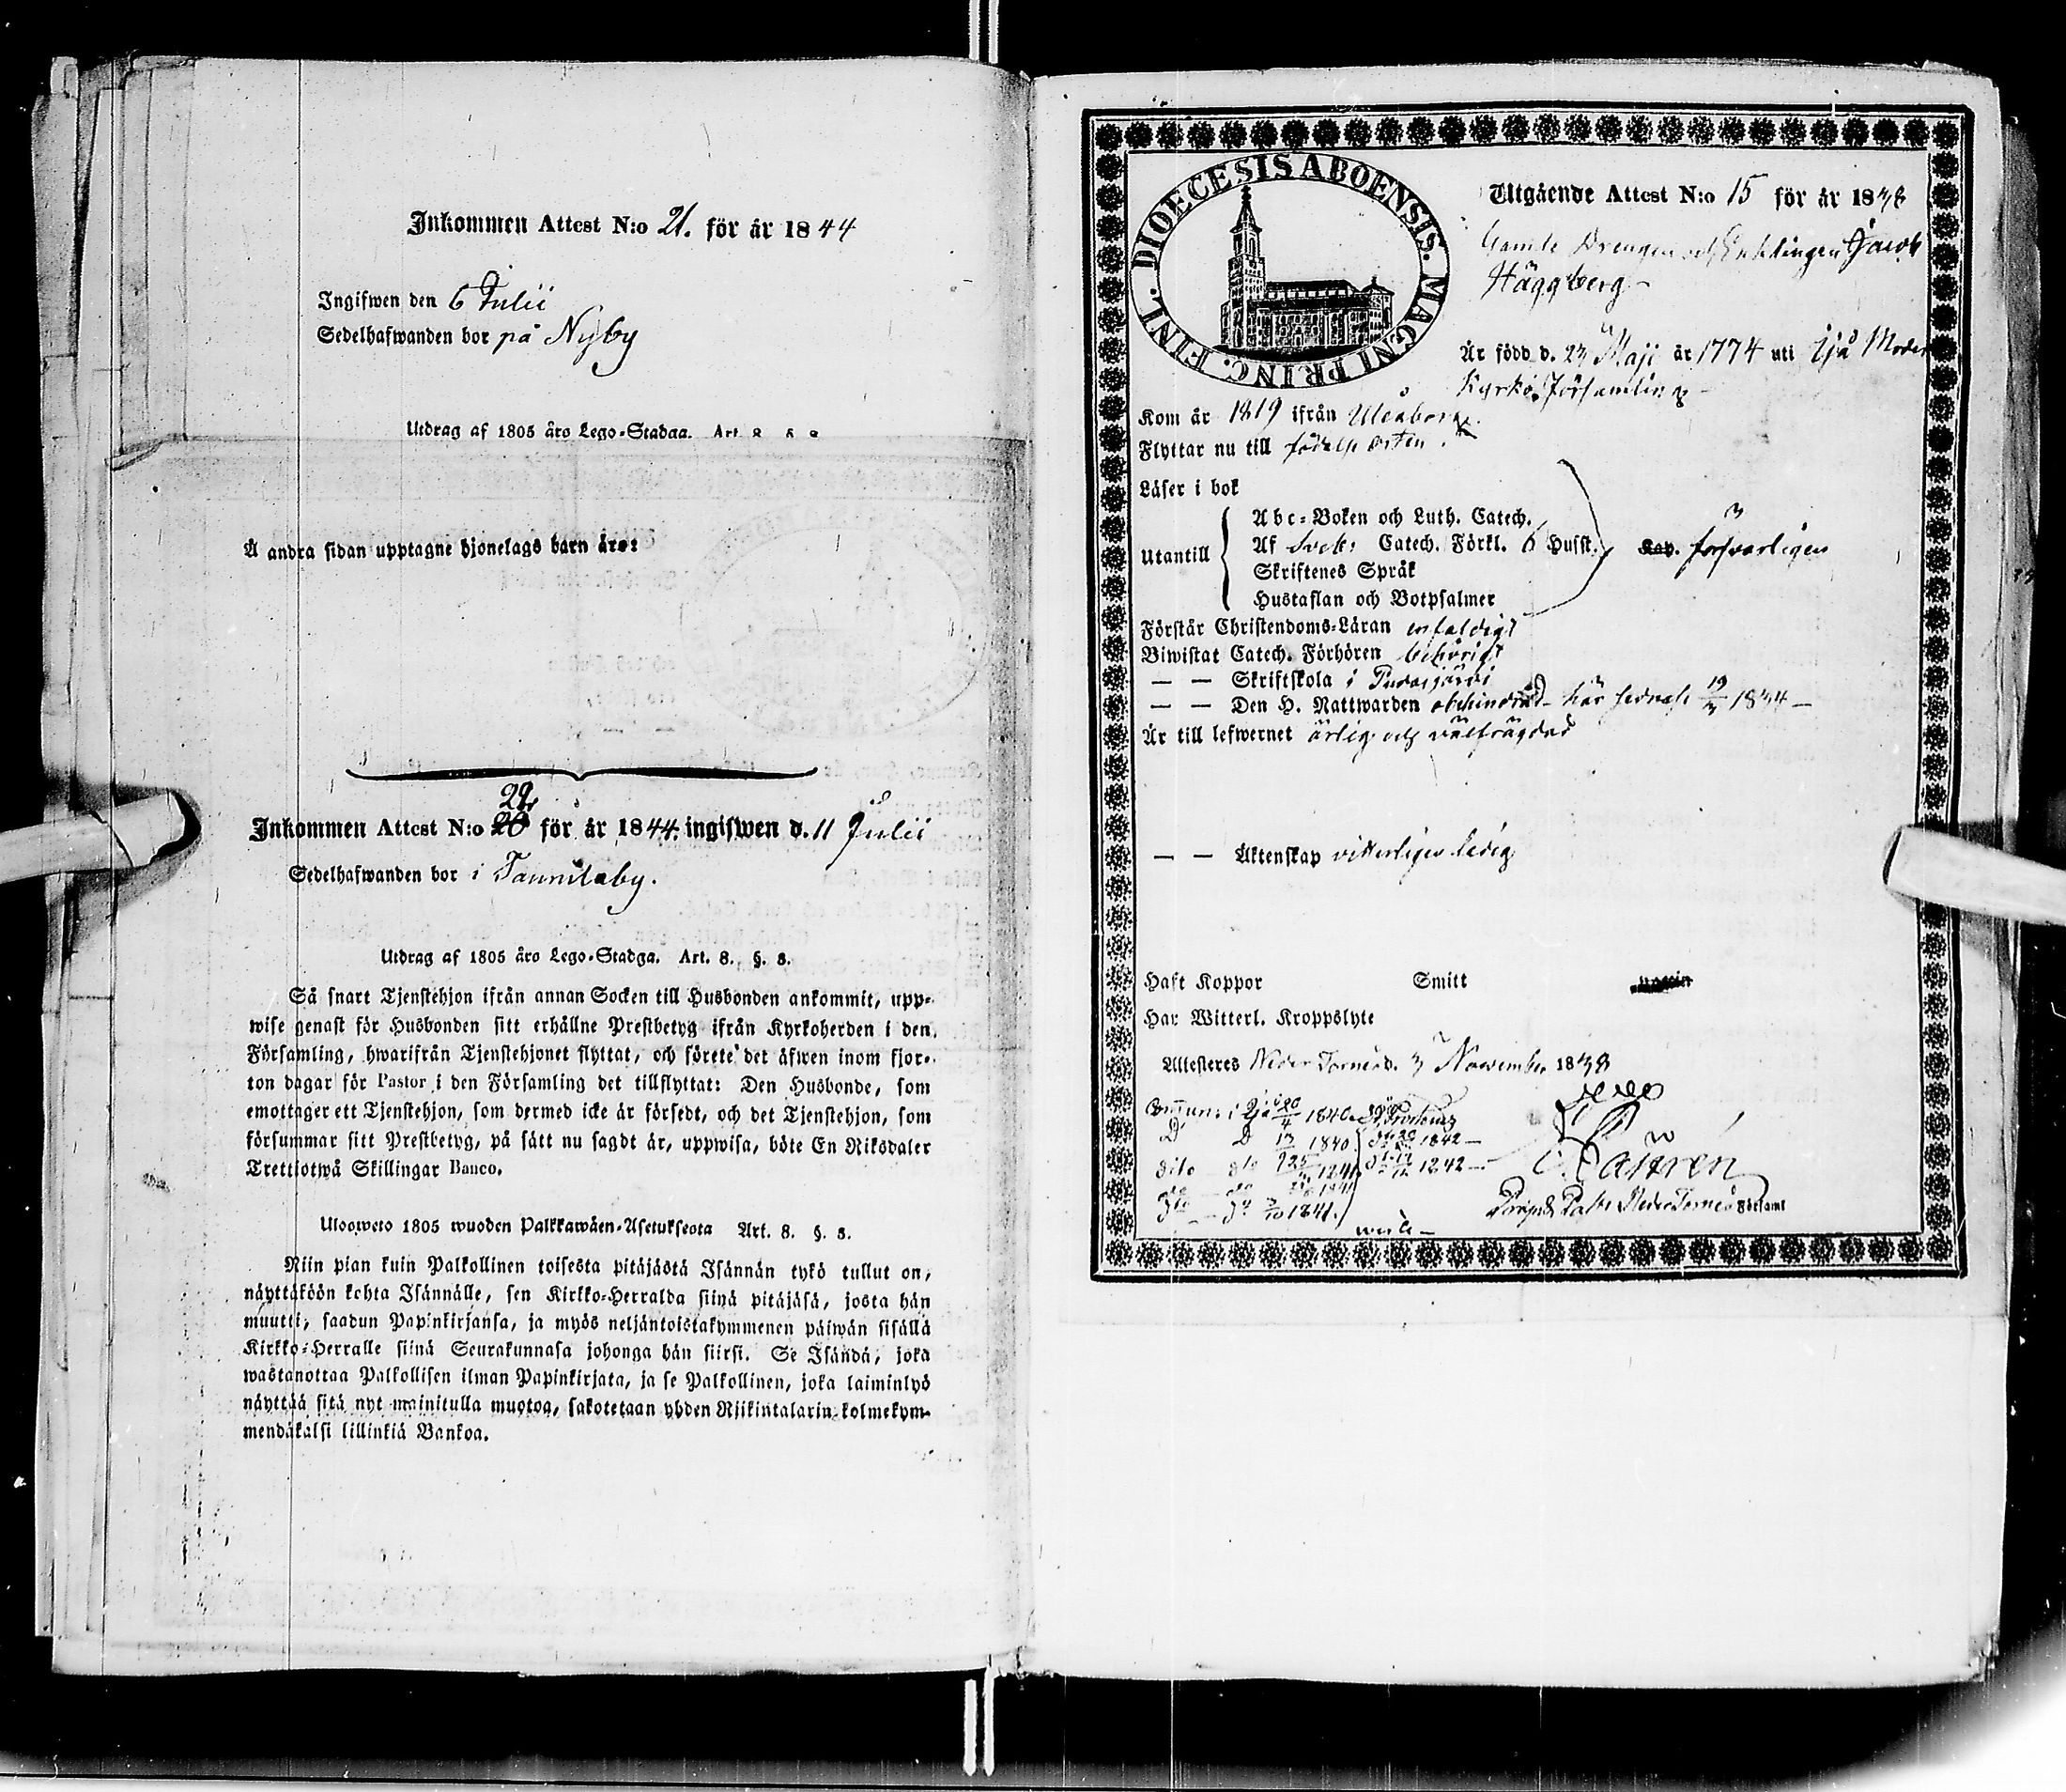 Inkommen Attest N:o 21. för år 1844
Ingifwen den 6 Julii
Sedelhafwanden bor på Nyby
Utdrag af 1805 års Lego-Stadga. Art 8 §
Å andra sidan upptagne hjonelags barn äro:
29
Inkommen Attest N:o 20 för år 1844. ingifwen d. 11 Julii
Sedelhafwanden bor i Tannilaby.
Utdrag af 1805 års Lego-Stadga. Art. 8. §. 8.
Så snart Tjenstehjon ifrån annan Socken till Husbonden ankommit, upp-
wise genast för Husbonden sitt erhållne Prestbetyg ifrån Kyrkoherden i den
Församling, hwarifrån Tjenstehjonet flyttat, och förete det äfwen inom fjor-
ton dagar för Pastor i den Församling det tillflyttat: Den Husbonde, som
emottager ett Tjenstehjon, som dermed icke är försedt, och det Tjenstehjon, som
försummar sitt Prestbetyg, på sätt nu sagdt är, uppwisa, böte En Riksdaler
Trettiotwå Skillingar Banco.
Ulosweto 1805 wuoden Palkkawäen-Asetuksesta Art. 8. §. 8.
Niin pian kuin Palkollinen toisesta pitäjästä Isännän tykö tullut on,
näyttäköön kohta Isännälle, sen Kirkko-Herralda siinä pitäjäsä, josta hän
muutti, saadun Papinkirjansa, ja myös neljäntoistakymmenen päiwän sisällä
Kirkko-Herralle siinä Seurakunnasa johonga hän siirsi. Se Isändä, joka
wastanottaa Palkollisen ilman Papinkirjata, ja se Palkollinen, joka laiminlyö
näyttää sitä nyt mainitulla muotoa, sakotetaan yhden Riikintalarin kolmekym-
mendäkaksi killinkiä Bankoa.
DIOECESIS ABOENSIS. MAGNI PRINC. FINL.
Utgående Attest N:o 15 för år 1838
Gamle Drengen och Enklingen Jacob
Häggberg
Är född d. 23 Maji år 1774 uti Ijå Moder
Kyrko Församling
Kom år 1819 ifrån Uleåborg
Flyttar nu till födelse orten.
Läser i bok
Utantill
Abc-Boken och Luth. Catech.
Af Sveb: Catech. Förkl. 6 Husst.
Skriftenes Språk
Hustaflan och Botpsalmer
försvarligen
Förstår Christendoms-Läran enfaldigt
Biwistat Catech. Förhören behörigt
— — Skriftskola i Pudasjärvi
— — Den H. Nattwarden obehindrad här sednast 19 1834
Är till lefwernet ärlig och välfrägdad
— — Äktenskap vitterligen ledig
Haft Koppor Smitt
Har Witterl. Kroppslyte
Attesteres Neder Torneå d. 3 November 1838
Commun: i Ijå 20/4 1840
D D 13 1840 1842
dito dto 25 1841 1842
do do 1841
dto do 10 1841.
C. Castrén
Neder Torneå Församl